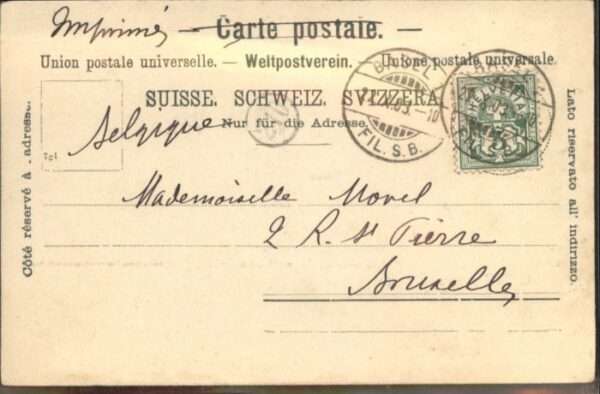 Imprimé
— Carte postale. —
Union postale universelle. — Weltpostverein. — Unione postale universale.
SUISSE. SCHWEIZ. SVIZZERA.
Nur für die Adresse.
Belgique
Mademoiselle Morel
2 R. St Pierre
Bruxelles
Côté réservé à l'adresse.
Lato riservato all' indirizzo.
BASEL 1
FIL. S. B.
HELVETIA
5